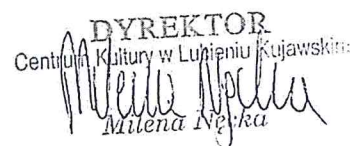 DYREKTOR
Centrum Kultury w Lubieniu Kujawskim
Milena